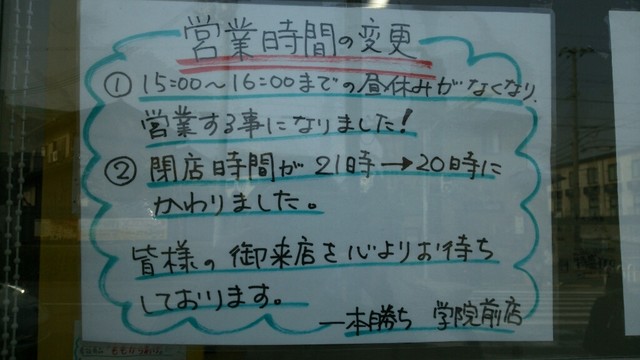 営業時間の変更
① 15:00〜16:00までの昼休みがなくなり、
営業する事になりました!
② 閉店時間が 21時→20時に
かわりました。
皆様の御来店を心よりお待ち
しております。
一本勝ち 学院前店